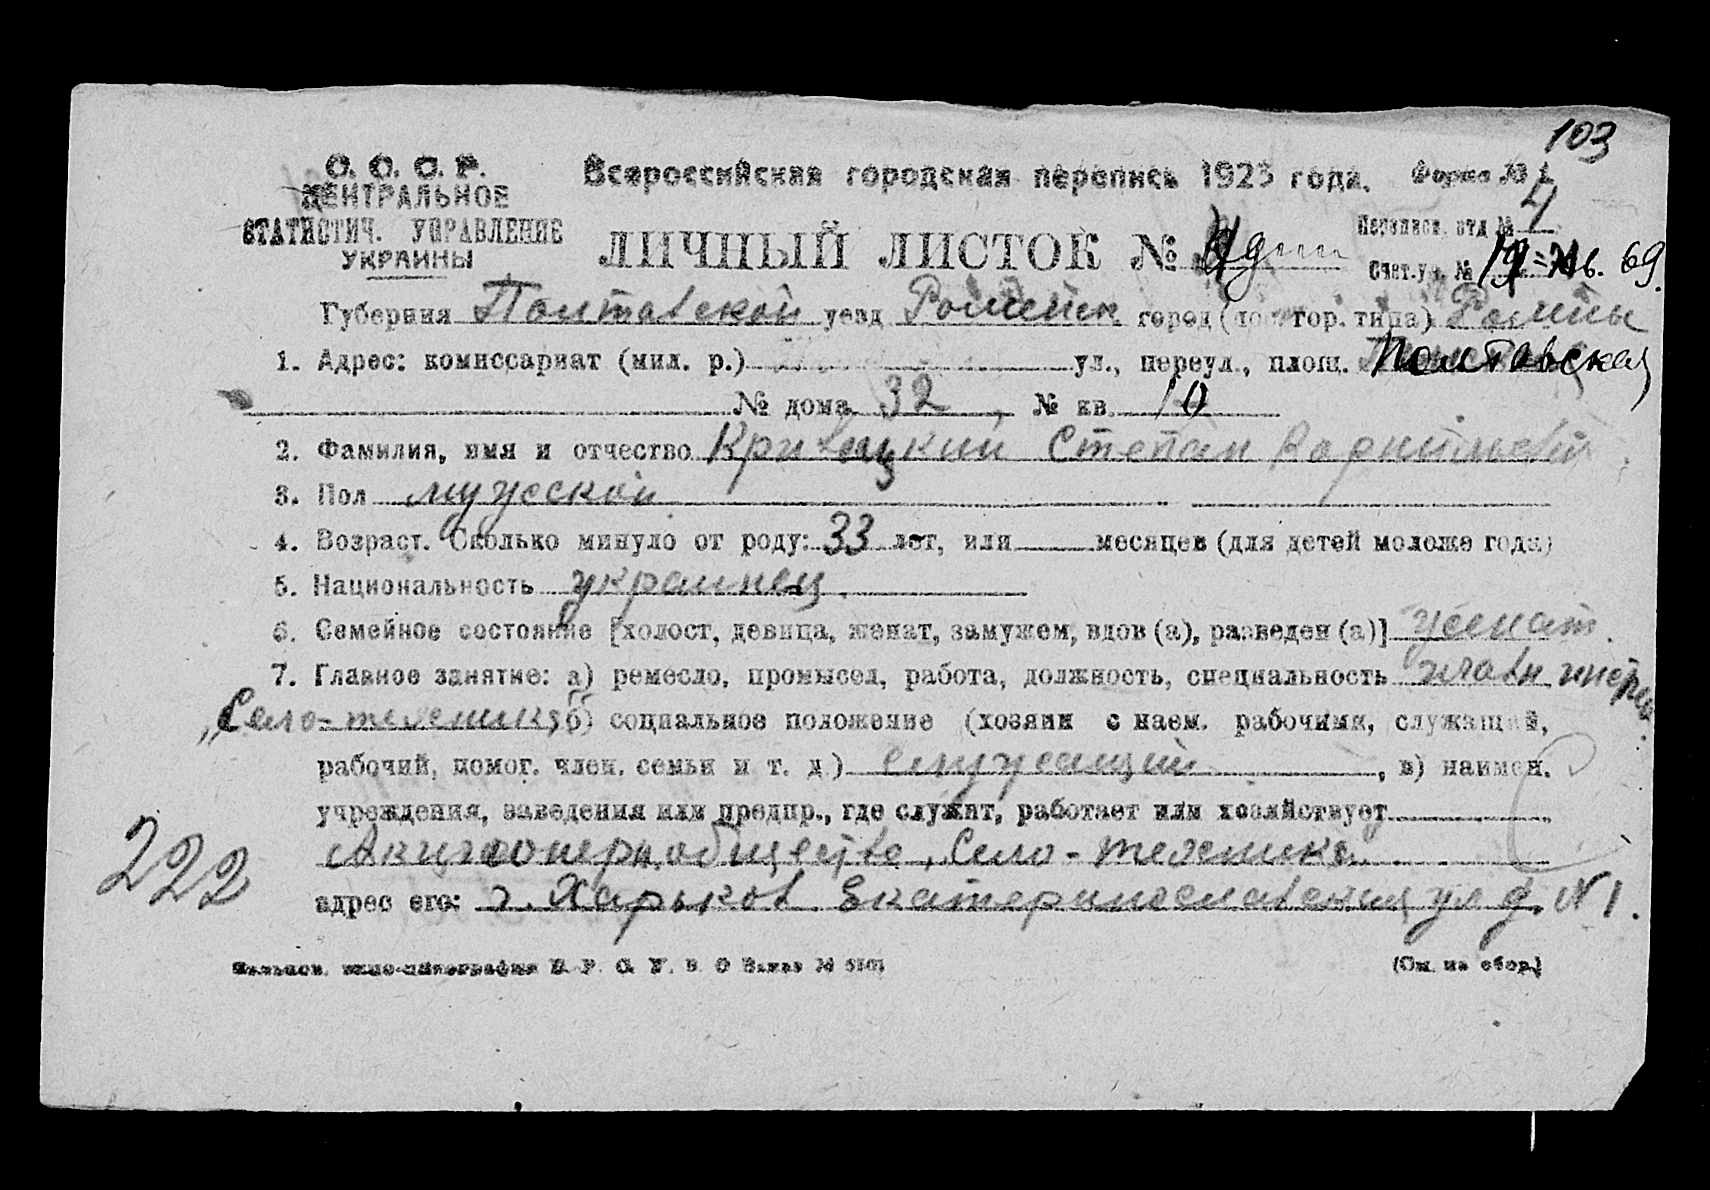 103
С. С. С. Р.
ЦЕНТРАЛЬНОЕ
СТАТИСТИЧ. УПРАВЛЕНИЕ
УКРАИНЫ
Всероссийская городская перепись 1923 года.
Форма № 1
ЛИЧНЫЙ ЛИСТОК №
Переписн. отд № 4
Счет.уч. № 19 69.
Губерния Полтавской уезд Роменск город (пос. гор. типа) Ромны
1. Адрес: комиссариат (мил. р.) ул., переул., площ. Полтавская
№ дома 32, № кв. 10
2. Фамилия, имя и отчество Кривицкий Степан Корнильевич
3. Пол мужской
4. Возраст. Сколько минуло от роду: 33 лет, или месяцев (для детей моложе года)
5. Национальность украинец.
6. Семейное состояние [холост, девица, женат, замужем, вдов (а), разведен (а)] женат.
7. Главное занятие: а) ремесло, промысел, работа, должность, специальность
„Село-техника", б) социальное положение (хозяин с наем. рабочими, служащий,
рабочий, помог. член. семьи и т. д.) служащий, в) наимен.
учреждения, заведения или предпр., где служит, работает или хозяйствует
Акционерн. общество, Село-техника
адрес его: г. Харьков Екатеринославская ул д. N 1.
222
(См. на обор.)